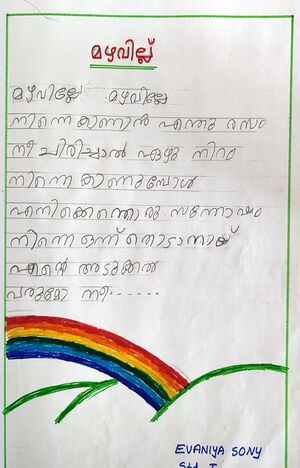 മഴവില്ല്
മഴവില്ലേ മഴവില്ലേ
നിന്നെ കാണാൻ എന്തു രസം
നീ ചിരിച്ചാൽ ഏഴു നിറം
നിന്നെ കാണുമ്പോൾ
എനിക്കെന്തൊരു സന്തോഷം
നിന്നെ ഒന്ന് തൊടാനായ്
എന്റെ അടുക്കൽ
വരുമോ നീ......
EVANIYA SONY
Std I